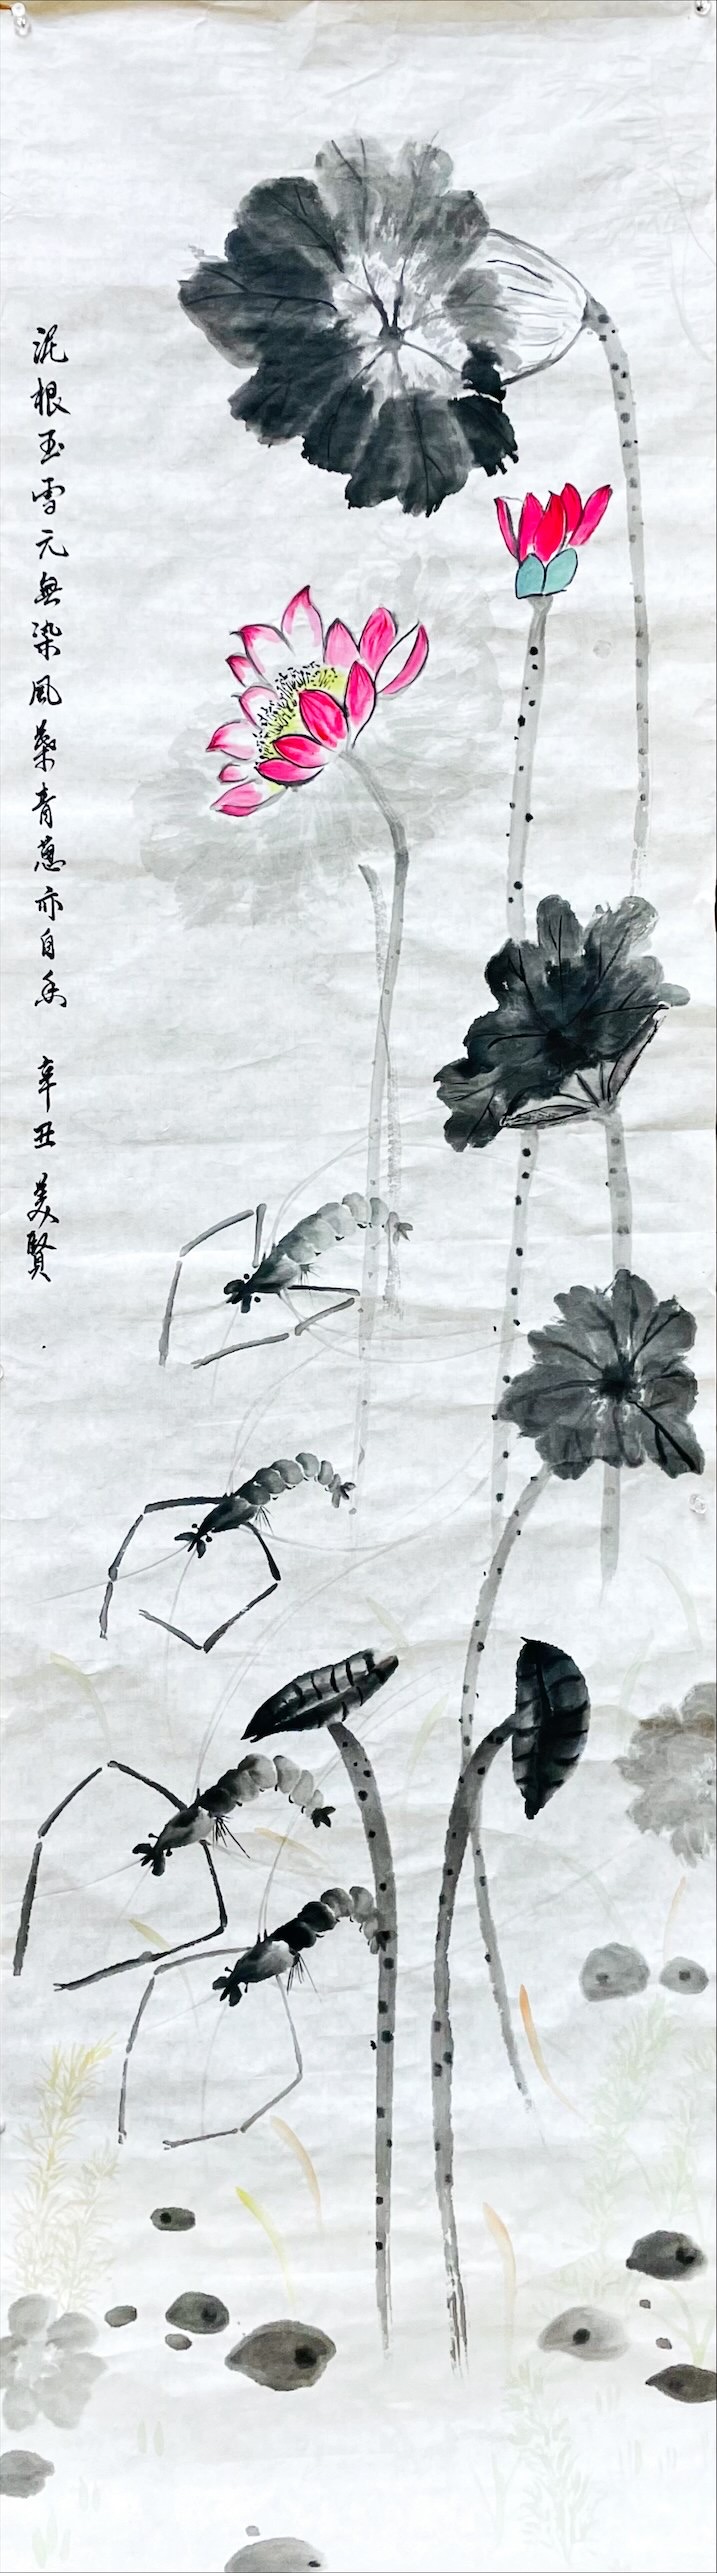 泥根玉雪元無染風葉青葱亦自香 辛丑 美賢